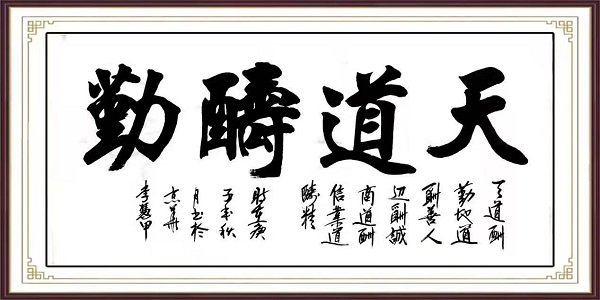 天道醻勤
天道酬
勤地道
酬善人
道酬誠
商道酬
信業道
醻精
時在庚
子秋
月書於
京華
李